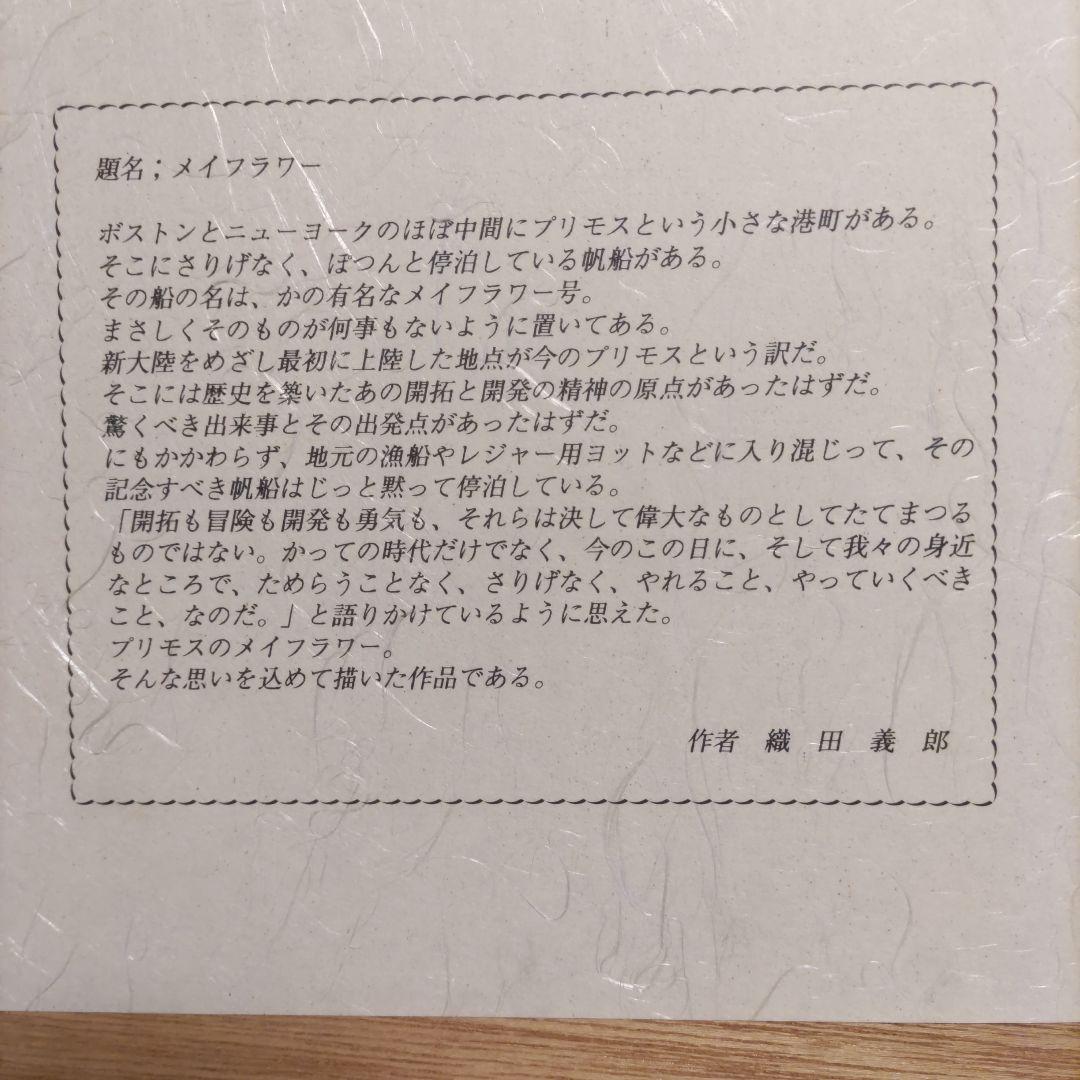 題名；メイフラワー
ボストンとニューヨークのほぼ中間にプリモスという小さな港町がある。
そこにさりげなく、ぽつんと停泊している帆船がある。
その船の名は、かの有名なメイフラワー号。
まさしくそのものが何事もないように置いてある。
新大陸をめざし最初に上陸した地点が今のプリモスという訳だ。
そこには歴史を築いたあの開拓と開発の精神の原点があったはずだ。
驚くべき出来事とその出発点があったはずだ。
にもかかわらず、地元の漁船やレジャー用ヨットなどに入り混じって、その
記念すべき帆船はじっと黙って停泊している。
「開拓も冒険も開発も勇気も、それらは決して偉大なものとしてたてまつる
ものではない。かっての時代だけでなく、今のこの日に、そして我々の身近
なところで、ためらうことなく、さりげなく、やれること、やっていくべき
こと、なのだ。」と語りかけているように思えた。
プリモスのメイフラワー。
そんな思いを込めて描いた作品である。
作者　織　田　義　郎